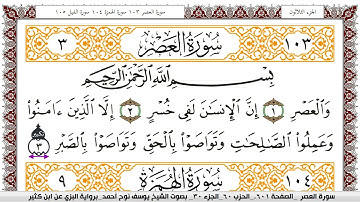 الجزء الثلاثون سورة العصر ١٠٣ سورة الهمزة ١٠٤ سورة الفيل ١٠٥
١٠٣ سُورَةُ العَصْرِ ٣
بِسْمِ اللَّهِ الرَّحْمَٰنِ الرَّحِيمِ
وَالْعَصْرِ ١ إِنَّ الْإِنسَٰنَ لَفِى خُسْرٍ ٢ إِلَّا الَّذِينَ ءَامَنُوا
وَعَمِلُوا الصَّٰلِحَٰتِ وَتَوَاصَوْا بِالْحَقِّ وَتَوَاصَوْا بِالصَّبْرِ ٣
١٠٤ سُورَةُ الهُمَزَةِ ٩
سورة العصر _الصفحة ٦٠١_ الحزب ٦٠_الجزء ٣٠ بصوت الشيخ يوسف نوح أحمد_برواية البزي عن ابن كثير